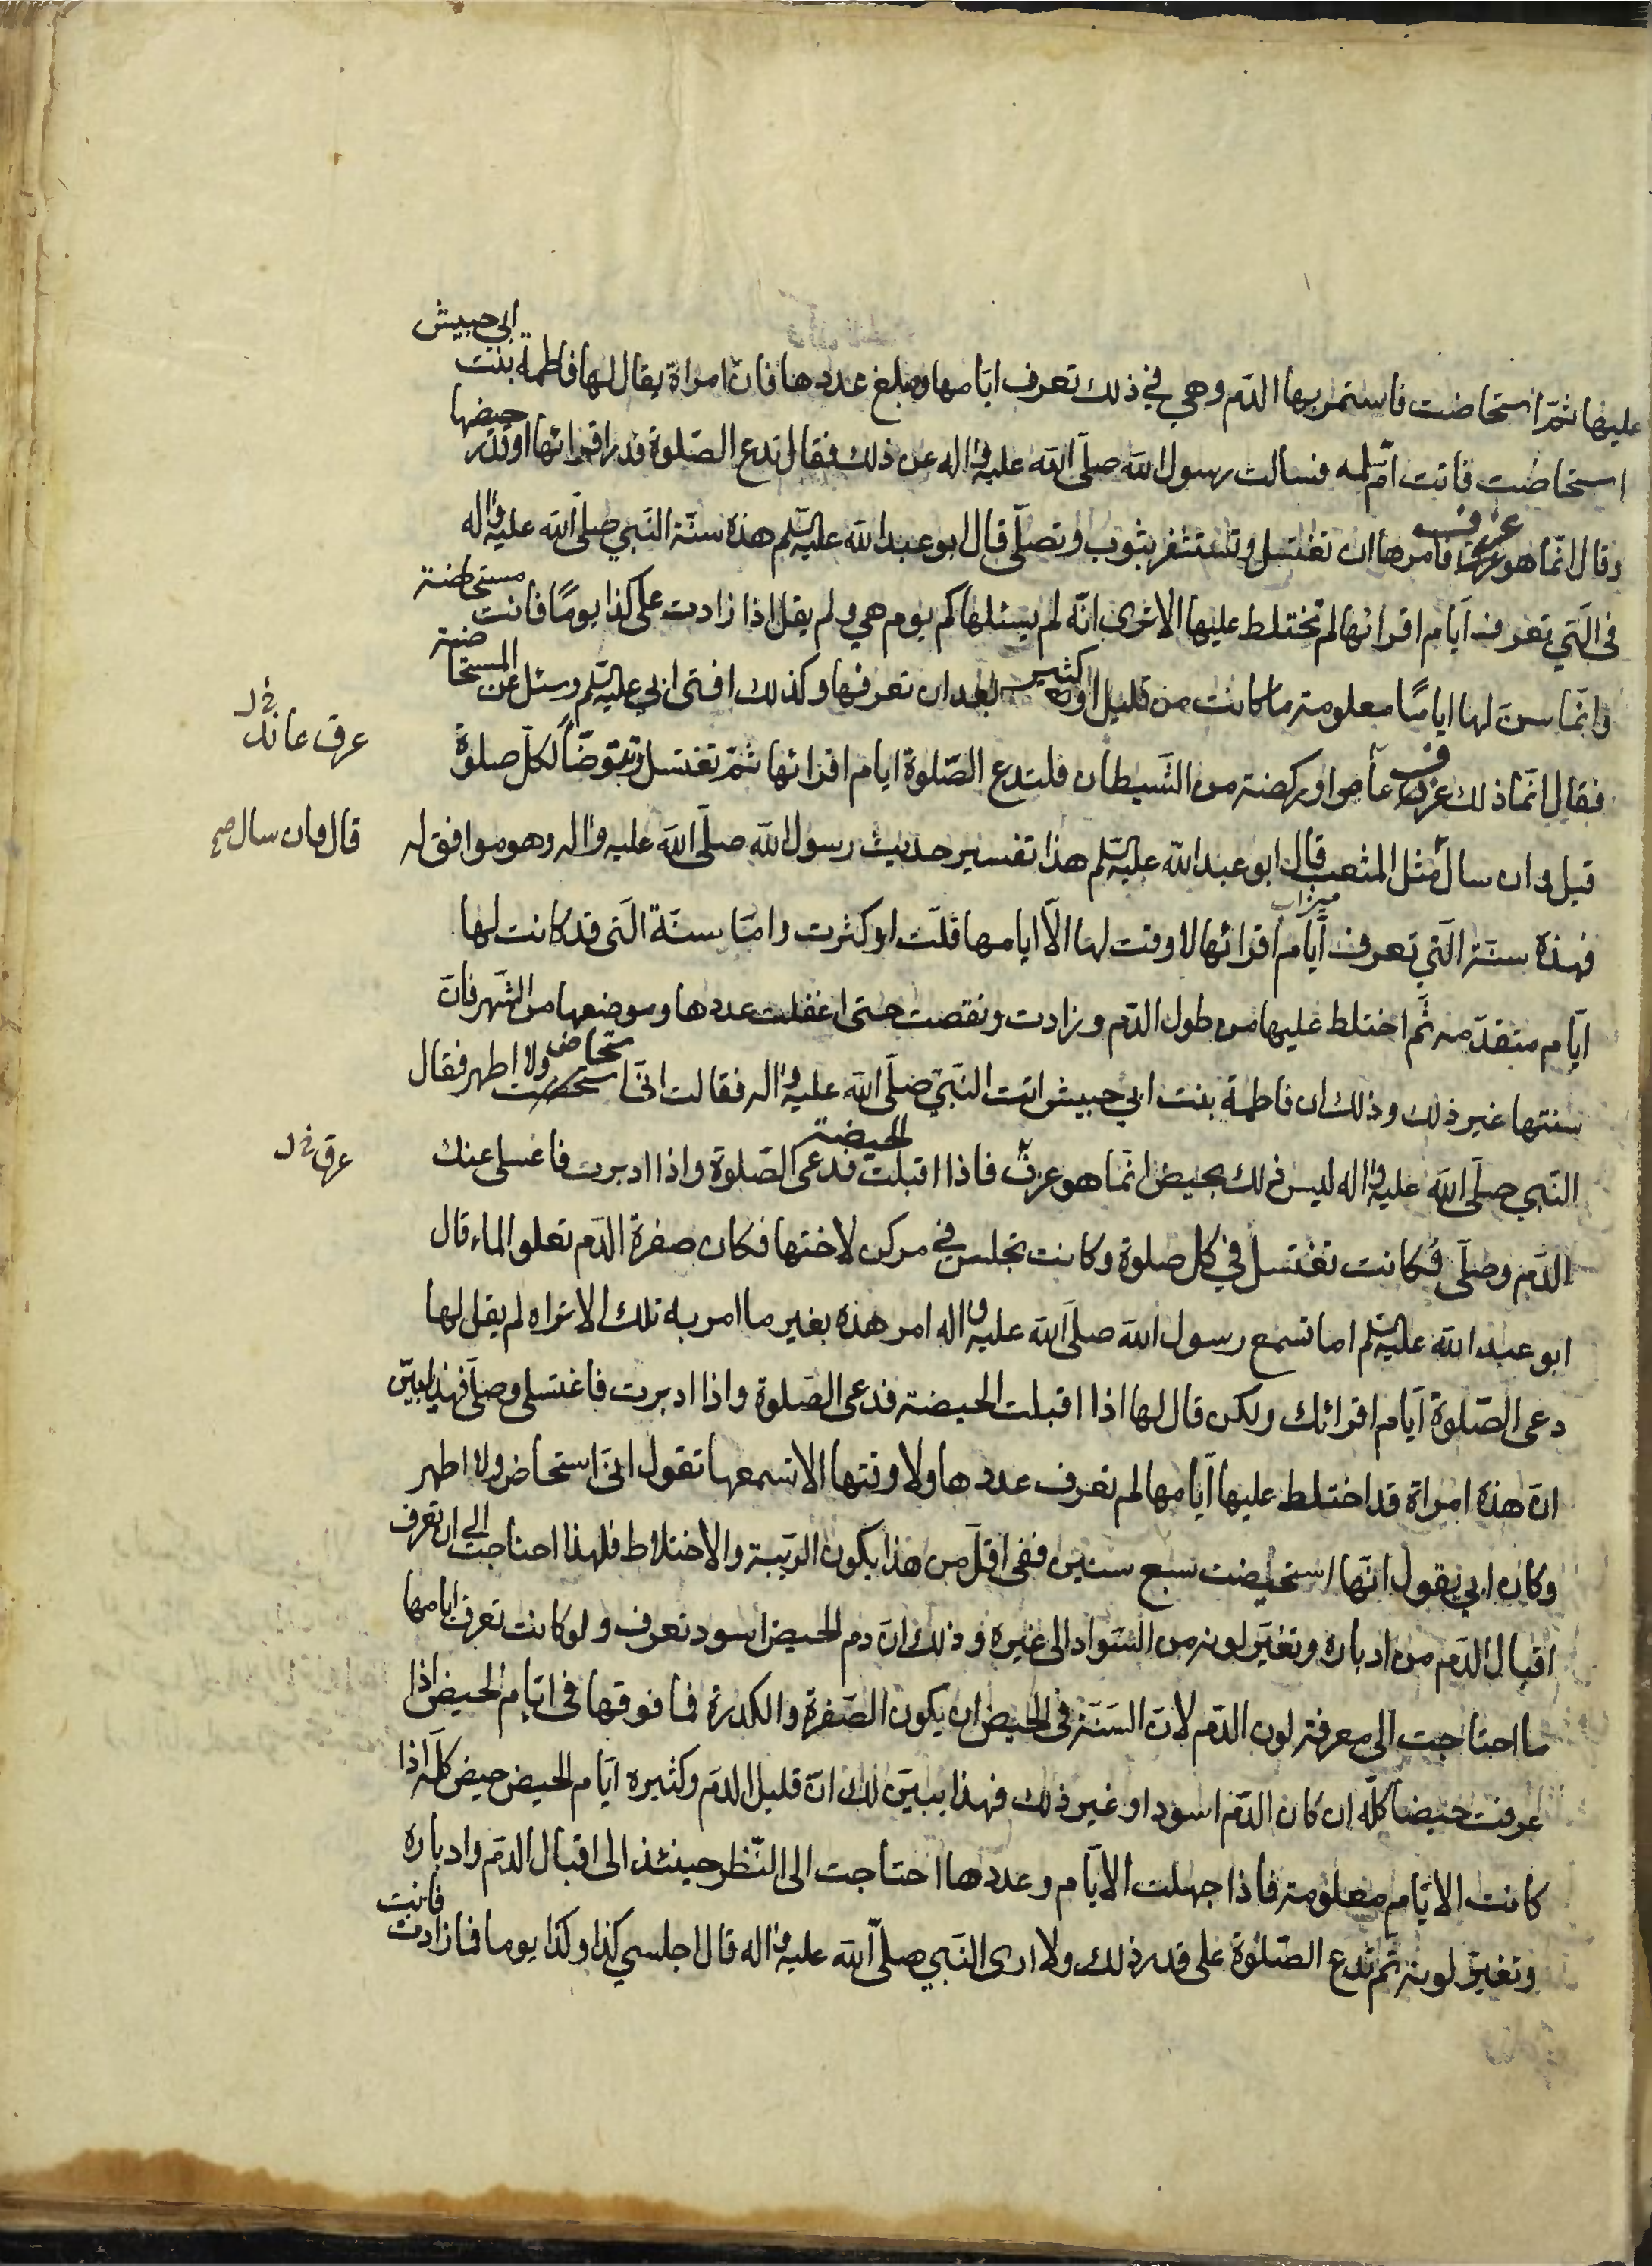 عليها ثمّ استحاضت فاستمر بها الدّم وهي في ذلك تعرف ايّامها ومبلغ عددها فانّ امراة يقال لها فاطمة بنت ابى حبيش
استحاضت فاتت امّ سلمه فسالت رسول الله صلّى الله عليه واله عن ذلك فقال تدع الصّلوة قدر اقرائها او قدر حيضها
وقال انّما هو عزف فامرها ان تغتسل وتستثفر بثوب وتصلّى قال ابو عبد الله عليه السّلم هذه سنّة النّبي صلّى الله عليه واله
فى الّتي تعرف ايّام اقرائها لم تختلط عليها الا ترى انّه لم يسئلها كم يوم هي ولم يقل اذا زادت على كذا يومًا فانت مستحاضة
وانّما سنّ لها ايامًا معلومة ما كانت من قليل او كثير بعد ان تعرفها وكذلك افتى ابي عليه السّلم وسئل عن المستحاضة
فقال انّما ذلك عزف عامر او ركضة من الشّيطان فلتدع الصّلوة ايام اقرائها ثمّ تغتسل وتتوضّأ لكلّ صلوة
عرق عاند خ ل
قيل وان سال مثل المثعب قال ابو عبد الله عليه السّلم هذا تفسير حديث رسول الله صلّى الله عليه واله وهو موافق له
ميزاب
قال وان سال صح
فهذه سنّة الّتي تعرف ايّام اقرائها لا وقت لها الّا ايامها قلّت او كثرت وامّا سنّة الّتى قد كانت لها
ايّام متقدّمه ثّم اختلط عليها من طول الدّم وزادت ونقصت حتى اغفلت عددها وموضعها من الشّهر فانّ
سنتها غير ذلك وذلك ان فاطمة بنت ابي حبيش اتت النّبيّ صلّى الله عليه واله فقالت انّى استحاض ولا اطهر فقال
النّبي صلّى الله عليه واله ليس ذلك بحيض انّما هو عزف فاذا اقبلت الحيضة فدعى الصّلوة واذا ادبرت فاغسلى عنك
عرق خ ل
الدّم وصلّى فكانت تغتسل في كل صلوة وكانت تجلس في مركن لاختها فكان صفرة الدّم تعلو الماء قال
ابو عبد الله عليه السّلم اما تسمع رسول الله صلّى الله عليه واله امر هذه بغير ما امر به تلك الا تراه لم يقل لها
دعى الصّلوة ايّام اقرائك ولكن قال لها اذا اقبلت الحيضة فدعى الصّلوة واذا ادبرت فاغتسلى وصلّى فهذا يبيّن
انّ هذه امراة قد اختلط عليها ايّامها لم تعرف عددها ولا وقتها الا تسمعها تقول انّى استحاض ولا اطهر
وكان ابي يقول انّها استحيضت سبع سنين ففى اقلّ من هذا يكون الريبة والاختلاط فلهذا احتاجت الى ان تعرف
اقبال الدّم من ادباره وتغيّر لونه من السّواد الى غيره وذلك انّ دم الحيض اسود تعرف ولو كانت تعرف ايامها
ما احتاجت الى معرفة لون الدّم لانّ السّنّة فى الحيض ان يكون الصّفرة والكدرة فما فوقها فى ايّام الحيض اذا
عرفت حيضا كلّه ان كان الدّم اسود او غير ذلك فهذا يبيّن لك انّ قليل الدّم وكثيره ايّام الحيض حيض كلّه اذا
كانت الايّام معلومة فاذا جهلت الايّام وعددها احتاجت الى النّظر حينئذ الى اقبال الدّم وادباره
وتغيّر لونه ثمّ تدع الصّلوة على قدر ذلك ولا ارى النّبي صلّى الله عليه واله قال اجلسي كذا وكذا يوما فما زادت فانت